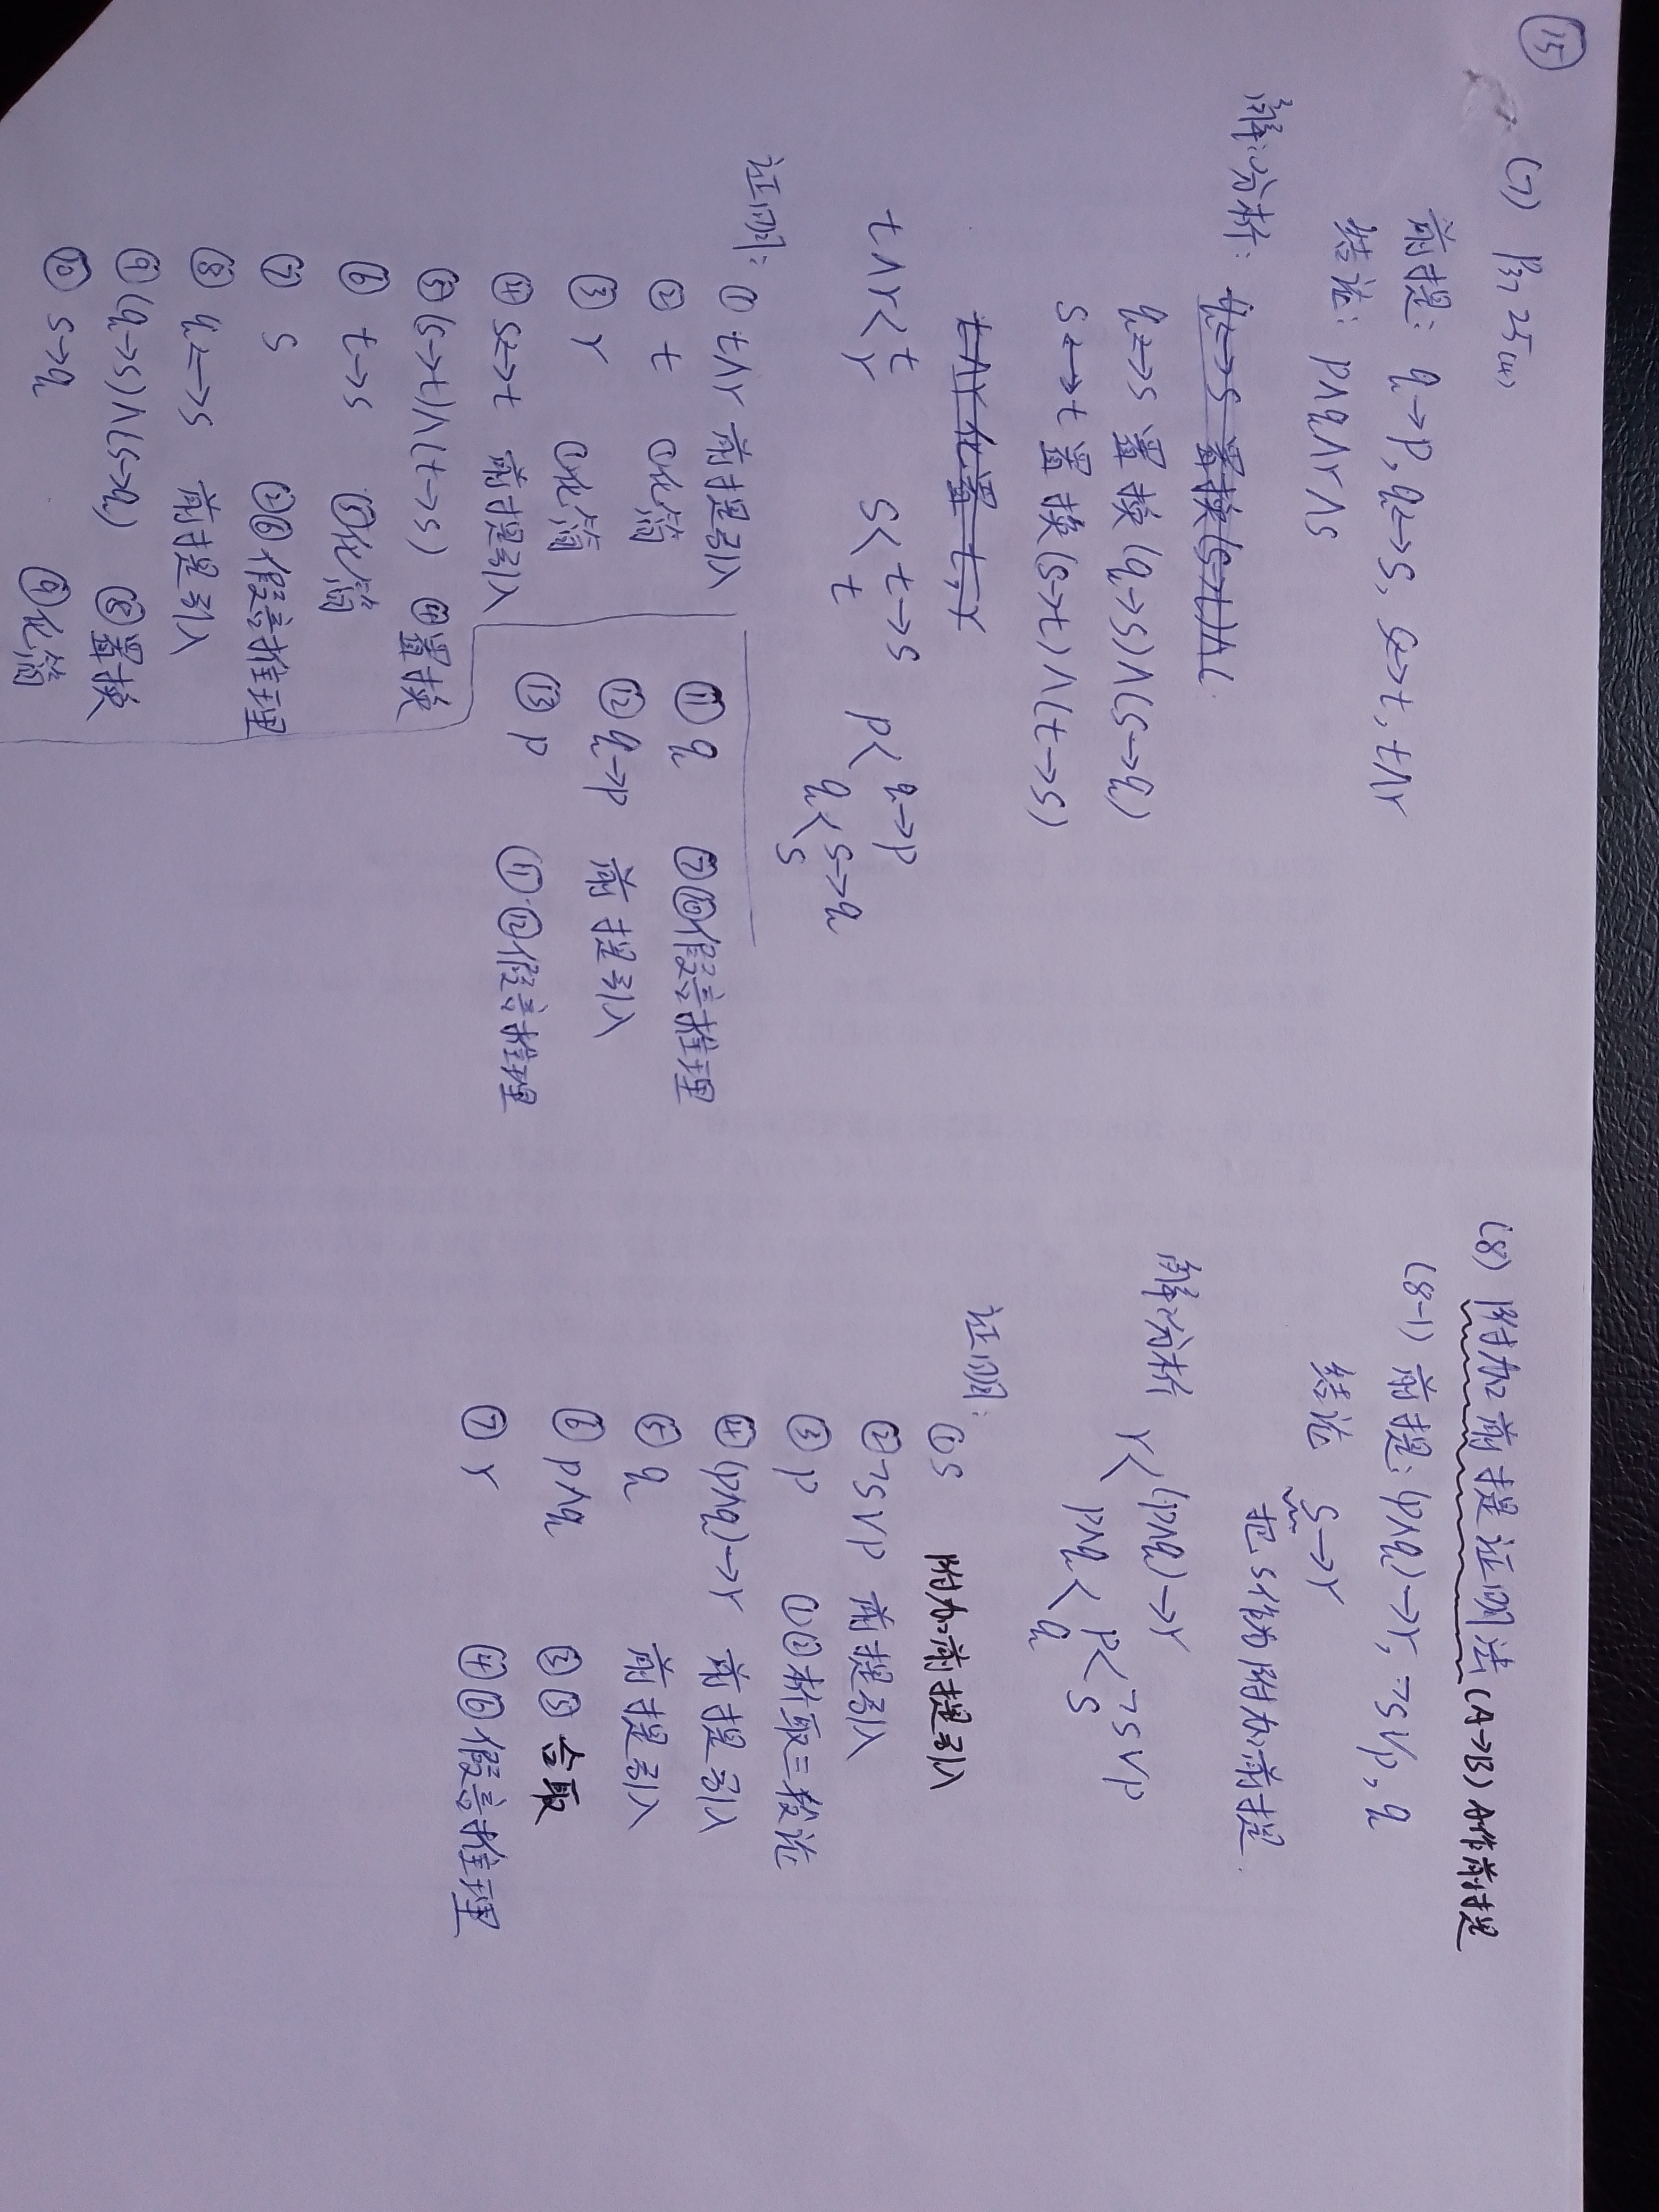 ⑮
(7) P37 25(4)
前提: q→p, q↔s, s↔t, t∧r
结论: p∧q∧r∧s
解:分析: q↔s 置换(s→t)∧(
q↔s 置换(q→s)∧(s→q)
s↔t 置换(s→t)∧(t→s)
t∧r 化置 t, r
t∧r< t r
s< t→s t
p< q→p q< s→q s
证明:
① t∧r 前提引入
② t ①化简
③ r ①化简
④ s↔t 前提引入
⑤ (s→t)∧(t→s) ④置换
⑥ t→s ⑤化简
⑦ s ②⑥假言推理
⑧ q↔s 前提引入
⑨ (q→s)∧(s→q) ⑧置换
⑩ s→q ⑨化简
⑪ q ⑦⑩假言推理
⑫ q→p 前提引入
⑬ p ⑪⑫假言推理
(8) 附加前提证明法(A→B) A作前提
(8-1) 前提: (p∧q)→r, ¬s∨p, q
结论 s→r
把s作为附加前提.
解:分析 r< (p∧q)→r
p∧q< p< ¬s∨p
s
q
证明:
① s 附加前提引入
② ¬s∨p 前提引入
③ p ①②析取三段论
④ (p∧q)→r 前提引入
⑤ q 前提引入
⑥ p∧q ③⑤合取
⑦ r ④⑥假言推理